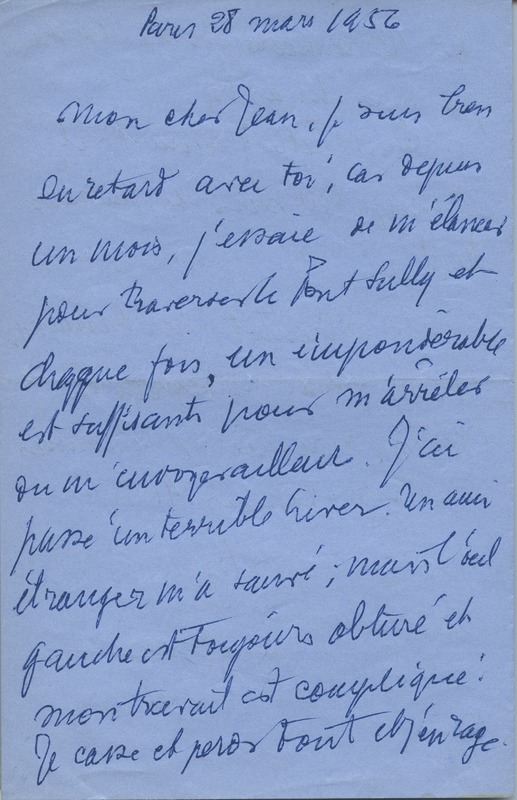 Paris 28 mars 1956
Mon cher Jean, je suis bien
en retard avec toi, car depuis
un mois, j'essaie de m'élancer
pour traverser le Pont Sully et
chaque fois, un impondérable
est suffisant pour m'arrêter
ou m'envoyer ailleurs. J'ai
passé un terrible hiver. Un ami
étranger m'a sauvé ; mais l'œil
gauche est toujours obturé et
mon travail est compliqué :
Je casse et perds tout et j'enrage.